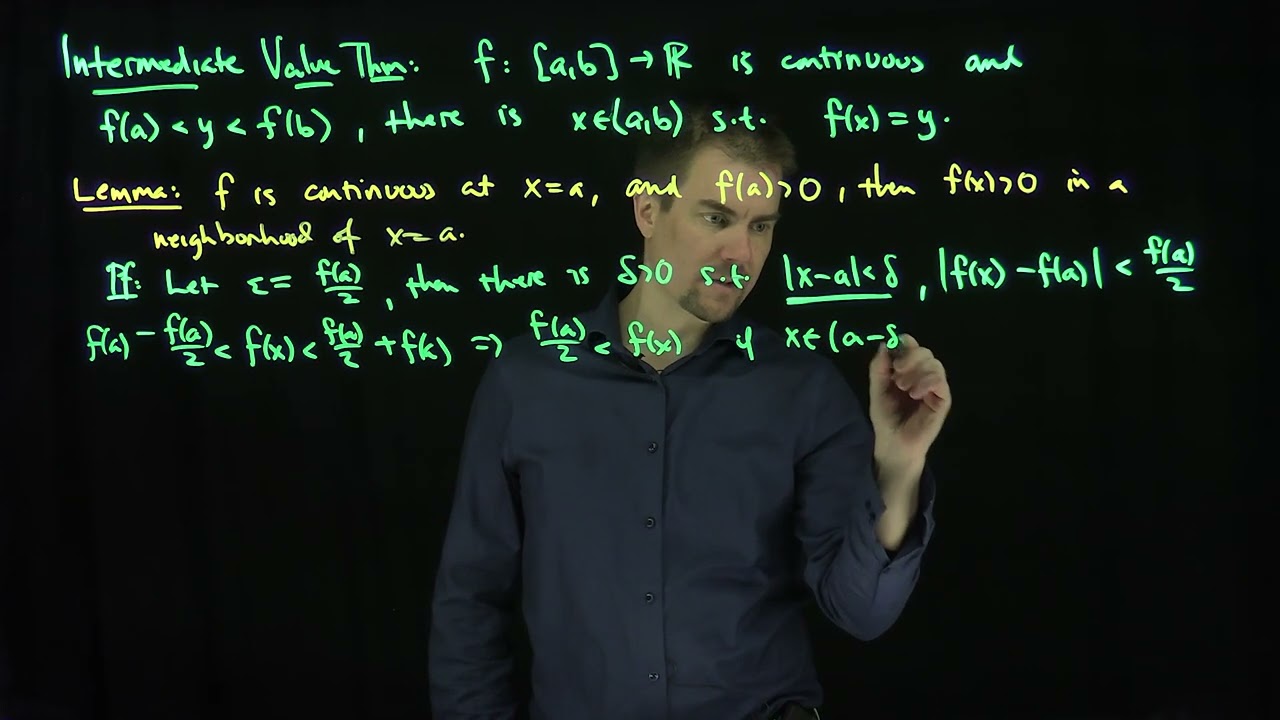 Intermediate Value Thm: f: [a,b] → ℝ is continuous and
f(a) < y < f(b), there is x∈(a,b) s.t. f(x) = y.
Lemma: f is continuous at x=a, and f(a)>0, then f(x)>0 in a
neighborhood of x=a.
Pf: Let ε = f(a)/2, then there is δ>0 s.t. |x-a|<δ, |f(x) - f(a)| < f(a)/2
f(a) - f(a)/2 < f(x) < f(a)/2 + f(a) ⇒ f(a)/2 < f(x) if x∈(a-δ